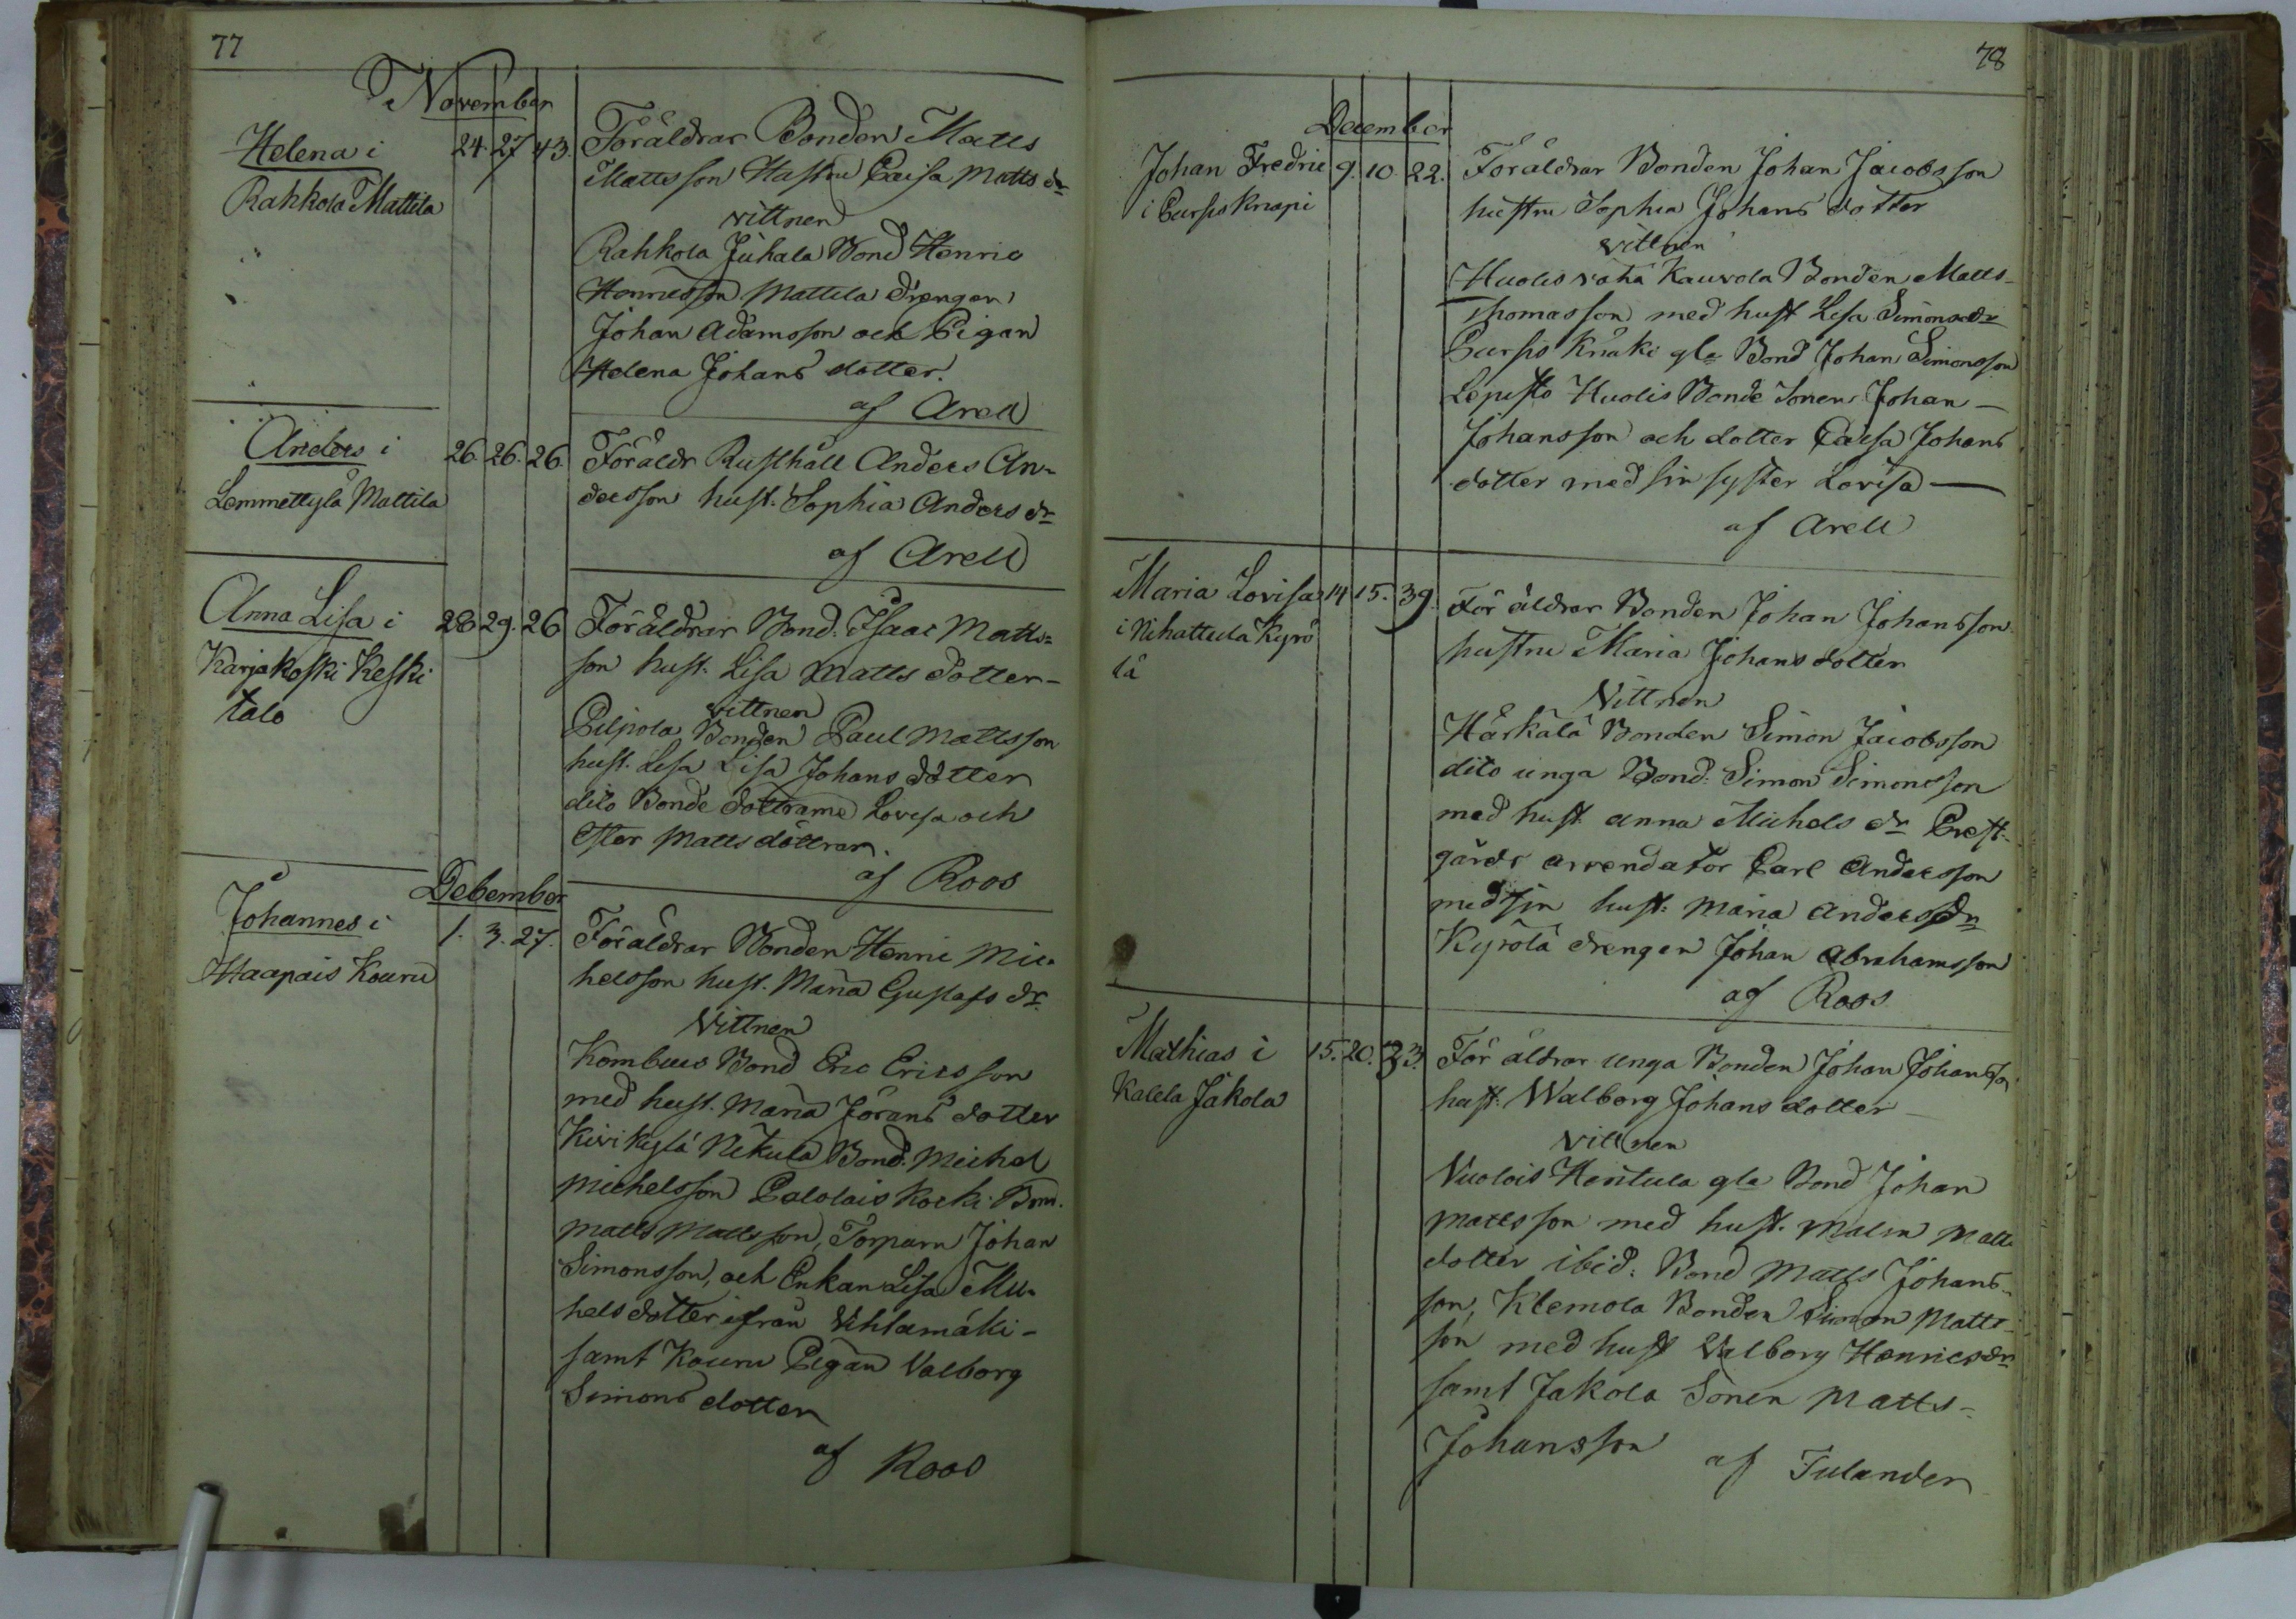 77
November
Helena i 24. 27 43. Föräldrar Bonden Matts
Rahkola Mattila Mattsson Hustru Caisa Matts dr
vittnen
Rahkola Juhala Bond Henric
Henricsson Mattila drengen
Johan Adamsson och Pigan
Helena Johans dotter.
af Arell
Anders i 26. 26. 26. Föräldr Rusthåll Anders An-
Lemmettylä Mattila dersson hust. Sophia Anders dr
af Arell
Anna Lisa i 28 29. 26 Föräldrar Bond. Isaac Matts=
Karjakoski Keski son hust. Lisa Matts dotter-
talo vittnen
Pilpola Bonden Paul Mattsson
hust. Lisa Lisa Johans dotter
dito Bonde döttrarne Lovisa och
Ester Matts döttrar.
af Roos
December
Johannes i 1. 3. 27. Föräldrar Bonden Henric Mic-
Haapais Kouru helsson hust. Maria Gustafs dr
Vittnen
Kombuis Bond Eric Ericsson
med hust. Maria Jörans dotter
Kivikylä Nikula Bond. Michel
Michelsson Palolais Kocki Bon.
Matts Mattsson, Torparn Johan
Simonsson, och Enkan Lisa Mic-
hels dotter ifrån Uhlamäki-
samt Kouru Pigan Valborg
Simons dotter
af Roos
78
December
Johan Fredric 9. 10. 22. Föräldrar Bonden Johan Jacobsson
i Pursis Knapi hustru Sophia Johans dotter
vittnen
Huolis vähä Kauvola Bonden Matts-
Thomasson med hust Lisa Simonsdr
Pursis Knaki gla Bond Johan Simonsson
Lepistö Huolis Bonde Sonen Johan-
Johansson och dotter Caisa Johans
dotter med sin syster Lovisa-
af Arell
Maria Lovisa 14 15. 39. För äldrar Bonden Johan Johansson
i Nihattula Kyrö hustru Maria Johans dotter
lä Vittnen
Härkälä Bonden Simon Jacobsson
dito unga Bond: Simon Simonsson
med hust. Anna Michels dr Prest-
gårds arrendator Carl Andersson
med sin hust: Maria Andersdr
Kyrölä drengen Johan Abrahamsson
af Roos
Mathias i 15. 20. 33. För äldrar unga Bonden Johan Johansson
Kalela Jakola hust: Walborg Johans dotter-
vittnen
Nuolois Hentula gla Bond Johan
Mattsson med hust. Malin Matts
dotter ibid: Bond Matts Johans-
son, Klemola Bonden Simon Matts-
son med hust Valborg Henricsdr
samt Jakola Sonen Matts-
Johansson af Tulander